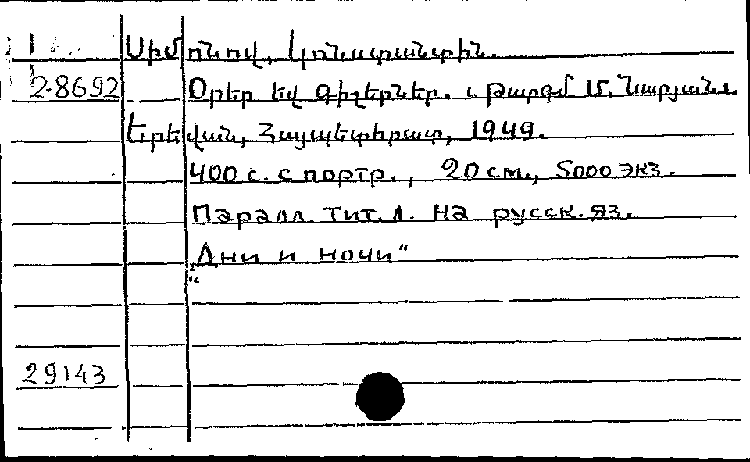 1
Սիմոնով, Կոնստանտին.
2-8692 Օրեր եվ գիշերներ. Թարգմ.
Երեվան, Հայպետհրատ, 1949.
400 с. с портр., 20 см., 5000 экз.
Паралл. тит. л. на русск. яз.
„Дни и ночи“
29143